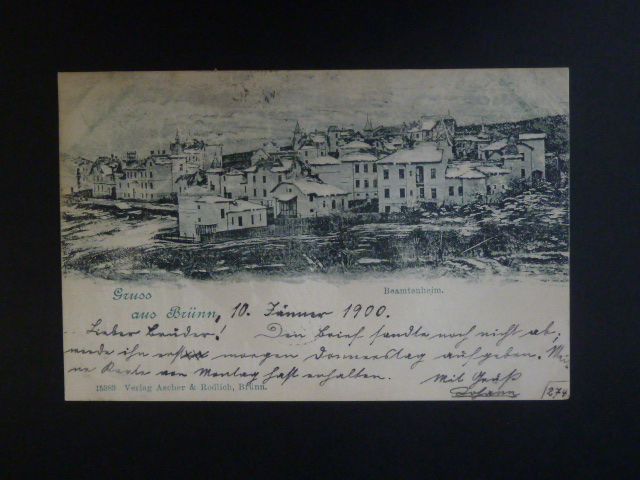 Beamtenheim.
Gruss
aus Brünn, 10. Jänner 1900.
Lieber Bruder! Den Brief sandte noch nicht ab;
werde ihn erst morgen Donnerstag aufgeben. Mei-
ne Karte von Montag hast erhalten. Mit Gruß
15383 Verlag Ascher & Redlich, Brünn. Johann
274